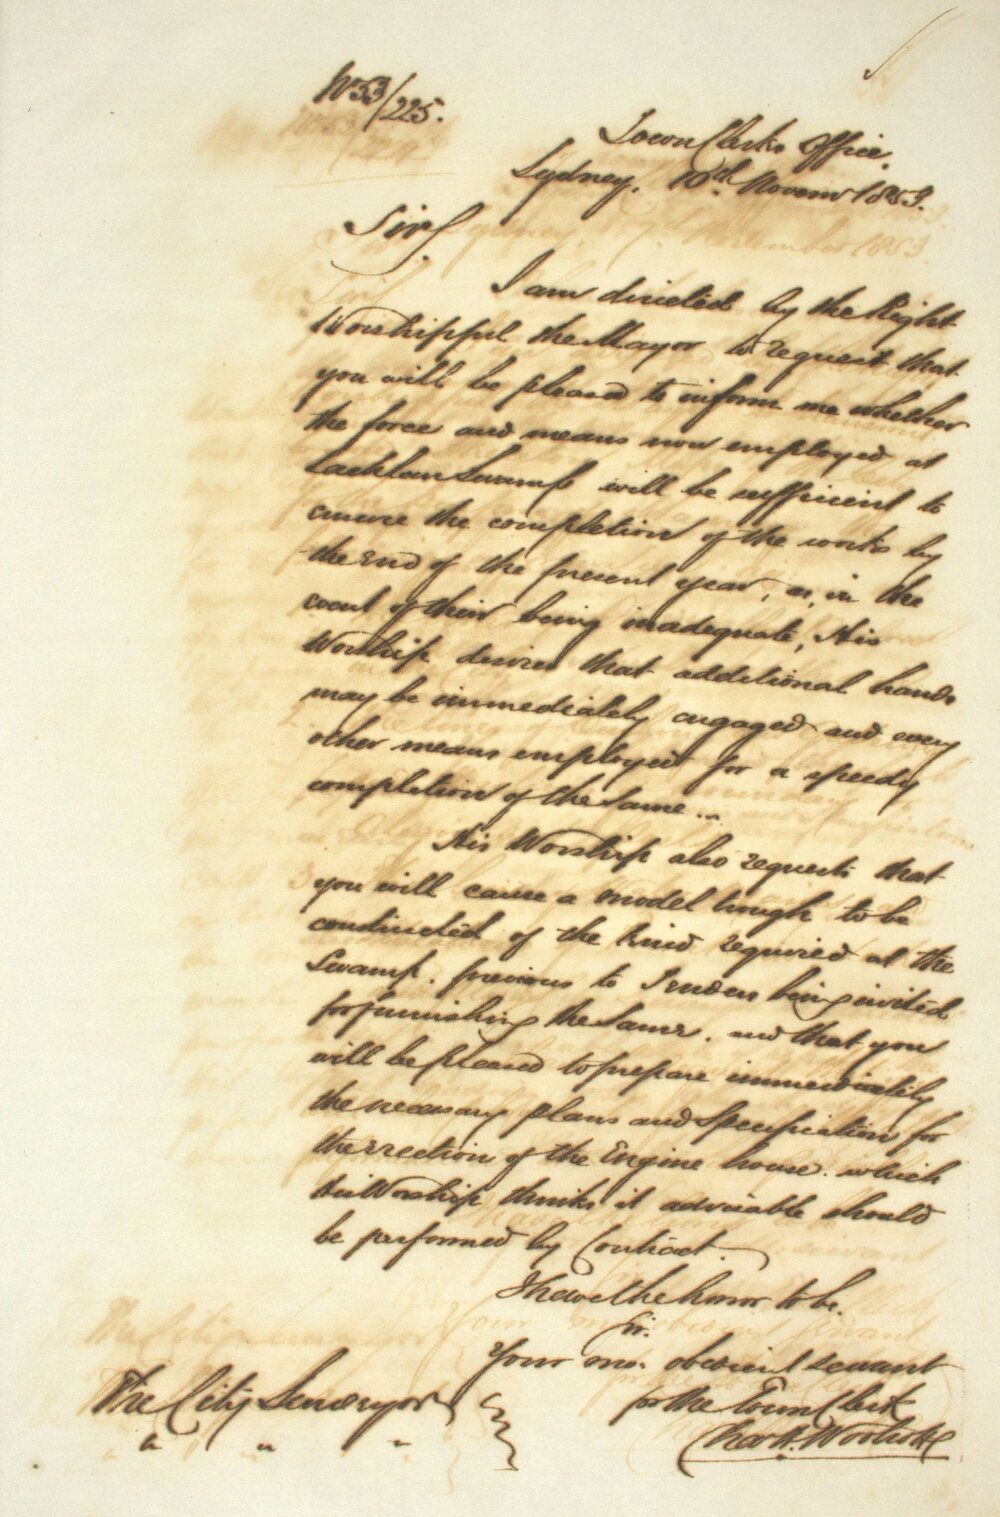 No 53/225.
Town Clerks Office.
Sydney, 10th Novemr 1853.
Sir,
I am directed by the Right
Worshipful the Mayor to request that
you will be pleased to inform me whether
the force and means now employed at
Lachlan Swamp will be sufficient to
ensure the completion of the works by
the End of the present year, as, in the
event of their being inadequate, His
Worship desires that additional hands
may be immediately engaged and every
other means employed for a speedy
completion of the same ...
His Worship also requests that
you will cause a model trough to be
constructed of the kind required at the
Swamp, previous to Tenders being invited
for furnishing the same, and that you
will be pleased to prepare immediately
the necessary plans and Specification for
the erection of the Engine house, which
His Worship thinks it advisable should
be performed by Contract.
I have the honor to be,
Sir,
Your mo: obedient servant
for the Town Clerk
Chas H. Woolcott
The City Surveyor
" " "